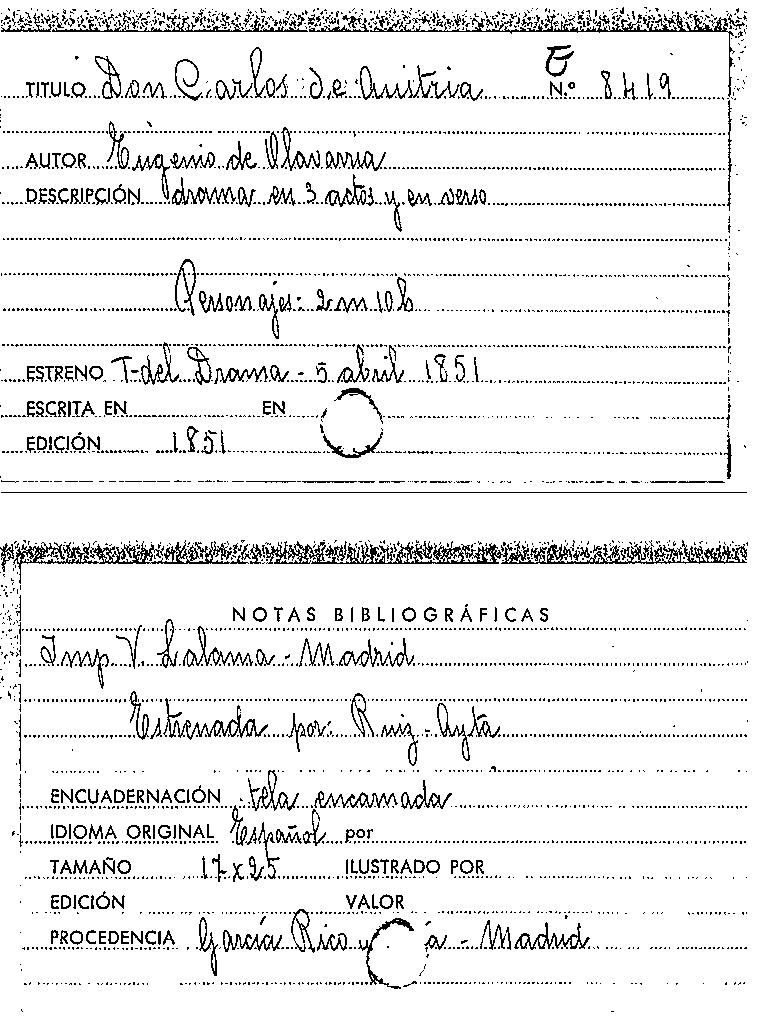 TITULO Don Carlos de Austria N.º 8419
AUTOR Eugenio de Olavarria
DESCRIPCIÓN drama en 3 actos y en verso
Personajes: 2 m 10 h
ESTRENO T. del Drama - 5 abril 1851
ESCRITA EN EN
EDICIÓN 1851
NOTAS BIBLIOGRÁFICAS
Imp V. Lalama - Madrid
Estrenada por: Ruiz - Ayta
ENCUADERNACIÓN tela encarnada
IDIOMA ORIGINAL Español por
TAMAÑO 17 x 25 ILUSTRADO POR
EDICIÓN VALOR
PROCEDENCIA García Rico y - Madrid